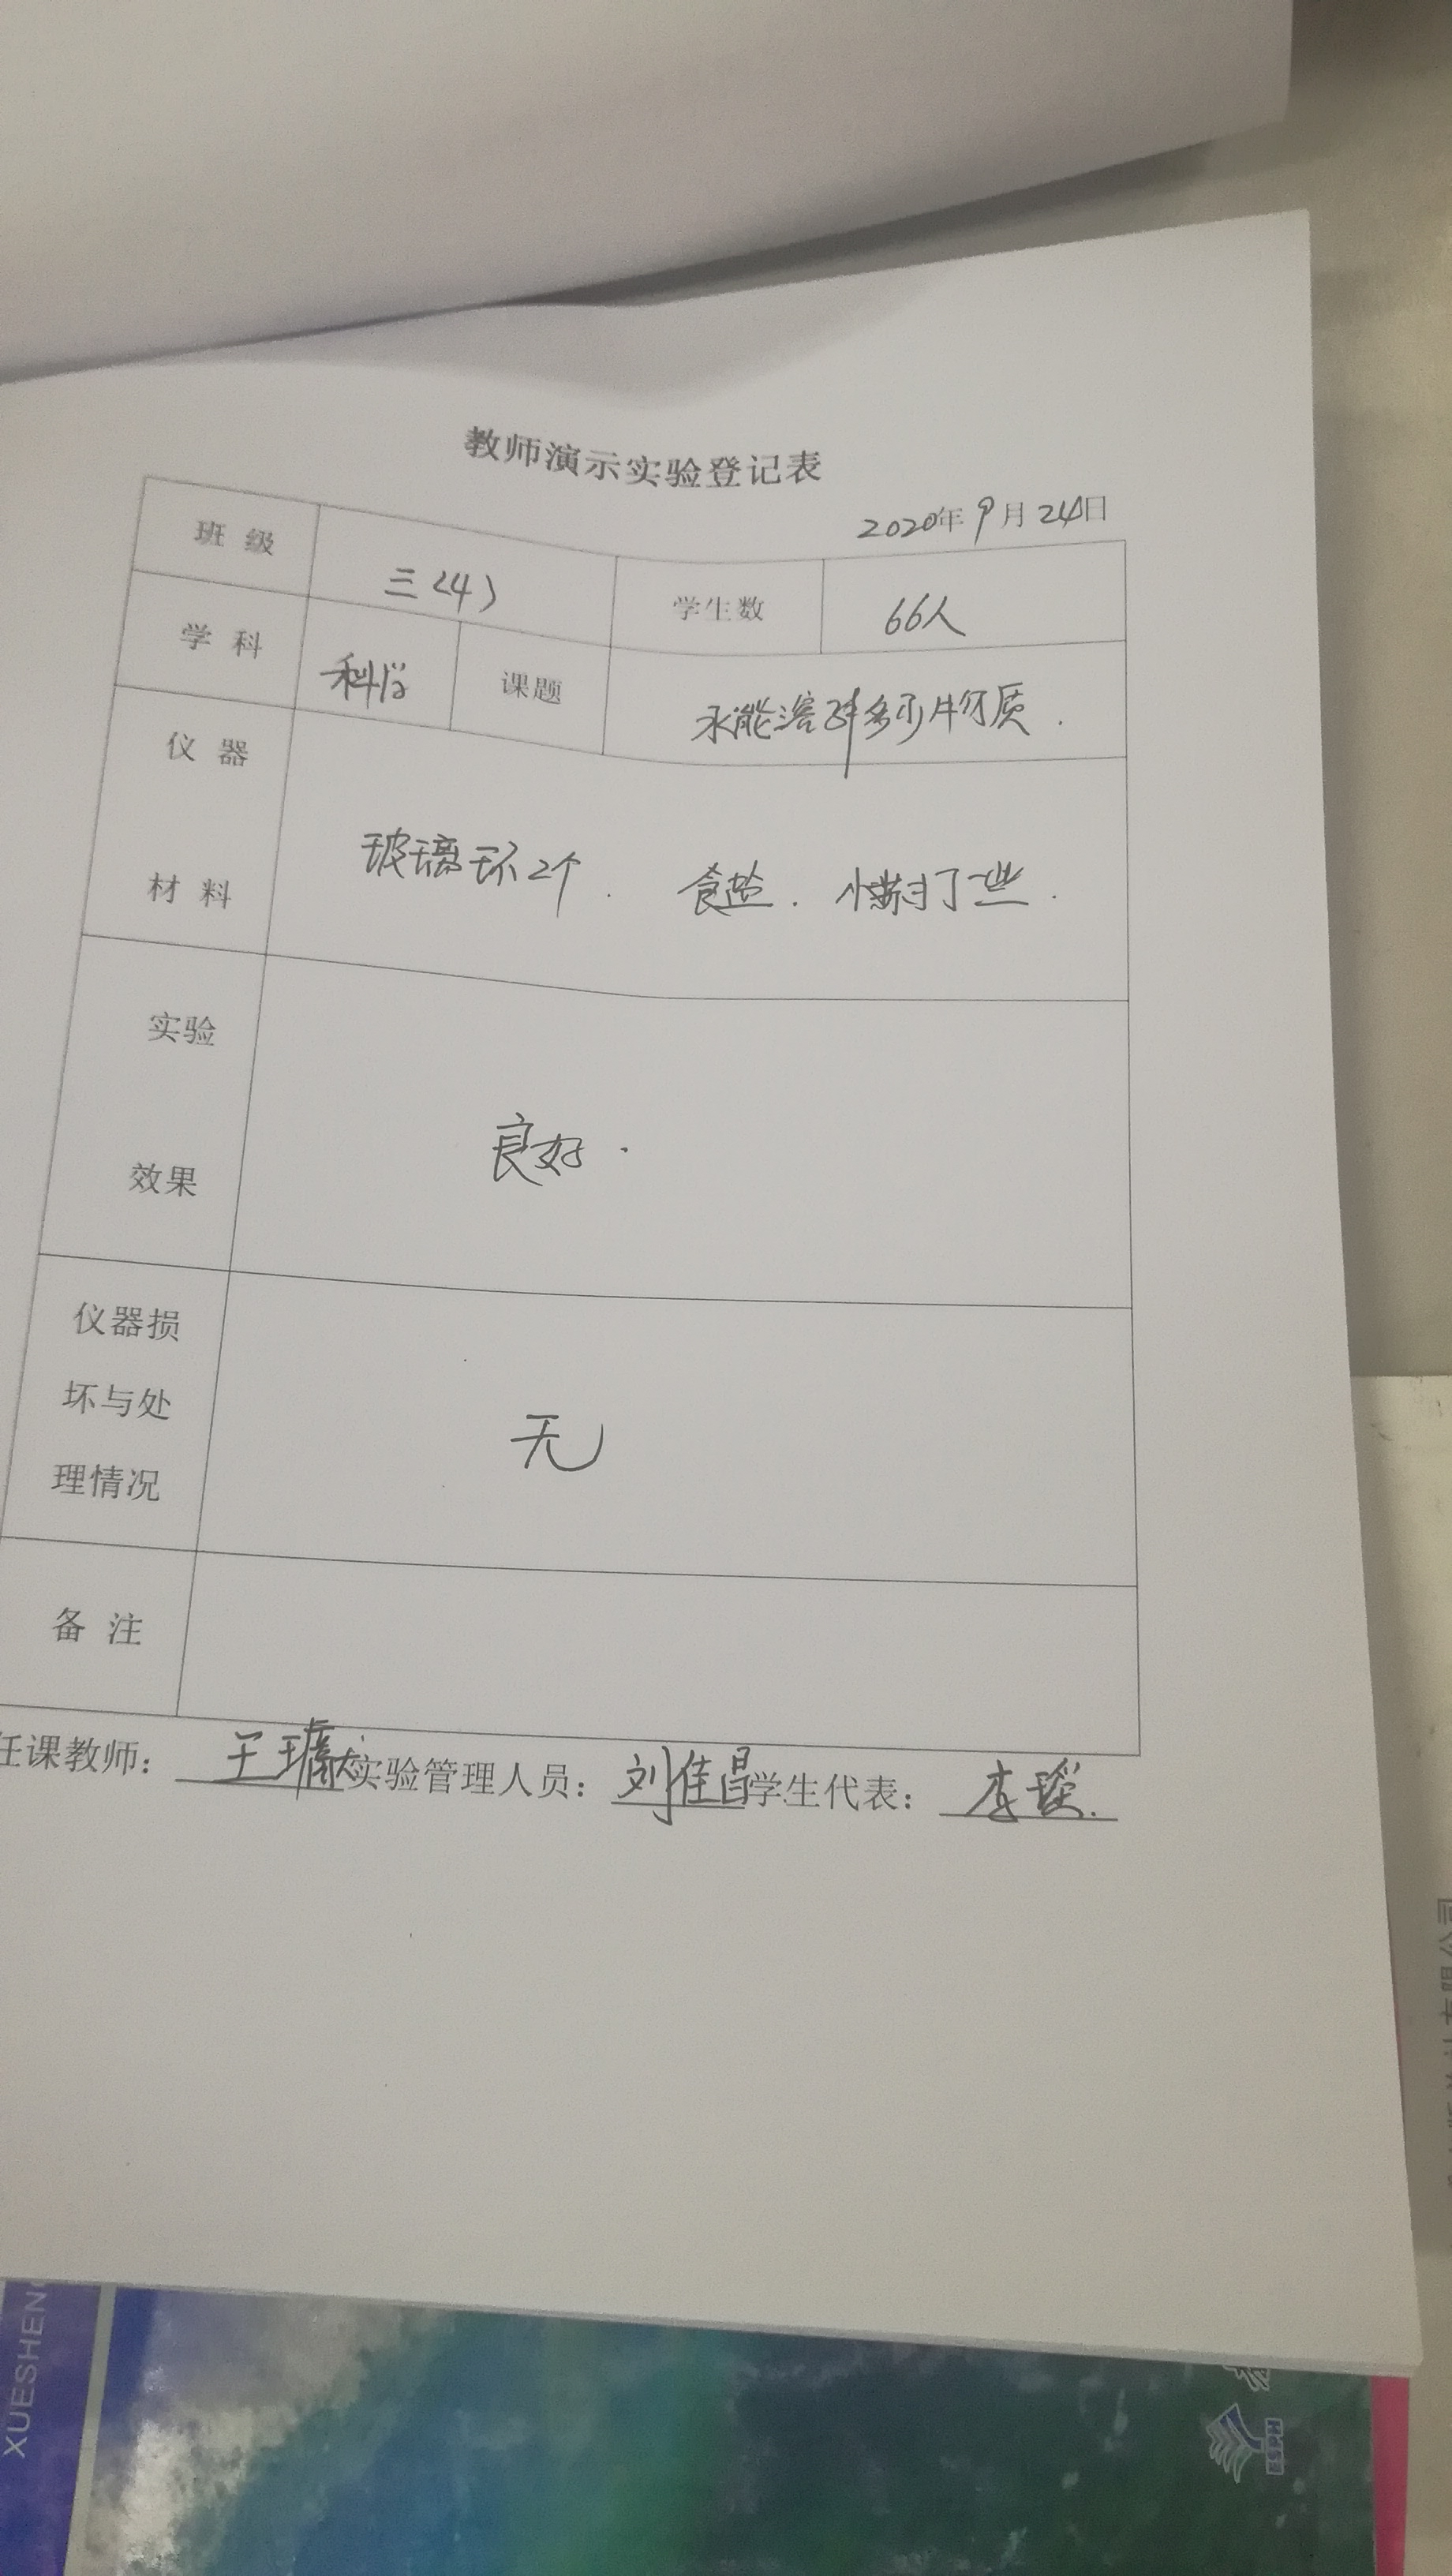 教师演示实验登记表
2020年9月24日
班 级 三(4) 学生数 66人
学 科 科学 课题 水能溶解多少物质.
仪 器
材 料
玻璃环2个. 食盐. 小苏打一些.
实验
效果
良好.
仪器损
坏与处
理情况
无
备 注
任课教师: 王 实验管理人员: 刘佳昌 学生代表: 李
XUESHENG